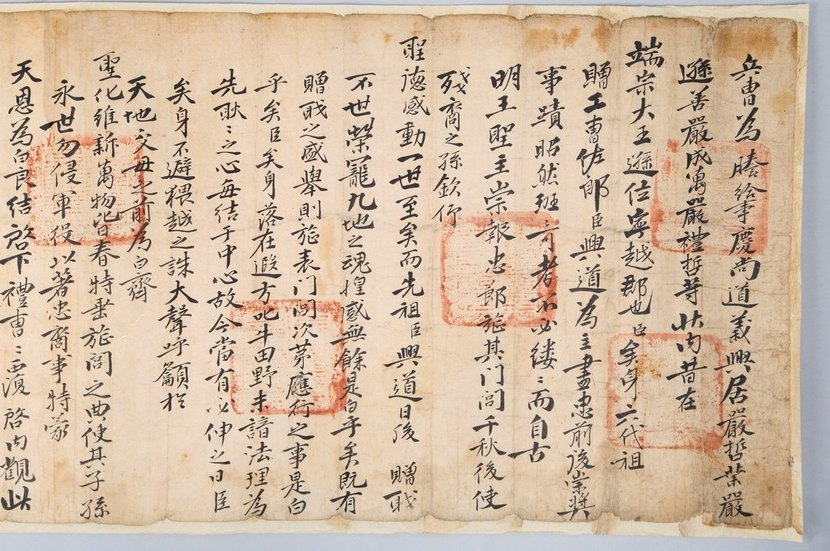 兵曺為謄給事慶尚道義興居嚴哲業嚴
遜善嚴成萬嚴禮哲等狀內昔在
端宗大王遜位寧越郡也臣矣身六代祖
贈工曺佐郎臣興道為主盡忠前後崇奬
事蹟昭然班〻可考者不必縷〻而自古
明王聖主崇報忠節旌其门閭千秋後使
殘裔之孫欽仰
聖德感動一世至矣而先祖臣興道日後 贈戝
不世榮寵九地之魂惶感無餘是白乎矣既有
贈戝之盛舉則旌表门閭次苐應行之事是白
乎矣臣矣身落在遐方叱牛田野未諳法理為
先耿〻之心每結于中心故今當有必伸之日臣
矣身不避猥越之誅大聲呼籲於
天地父母之前為白齊
聖化維新萬物皆春特垂旌閭之典使其子孫
永世勿侵軍役以著忠裔事特蒙
天恩為白良結啓下禮曺〻覆啓內觀此